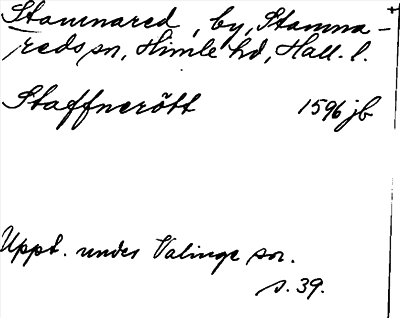 Stamnared, by, Stamna-
reds sn, Himle hd, Hall. l.
Staffnerött 1596 jb
Uppt. under Valinge sn.
s. 39.